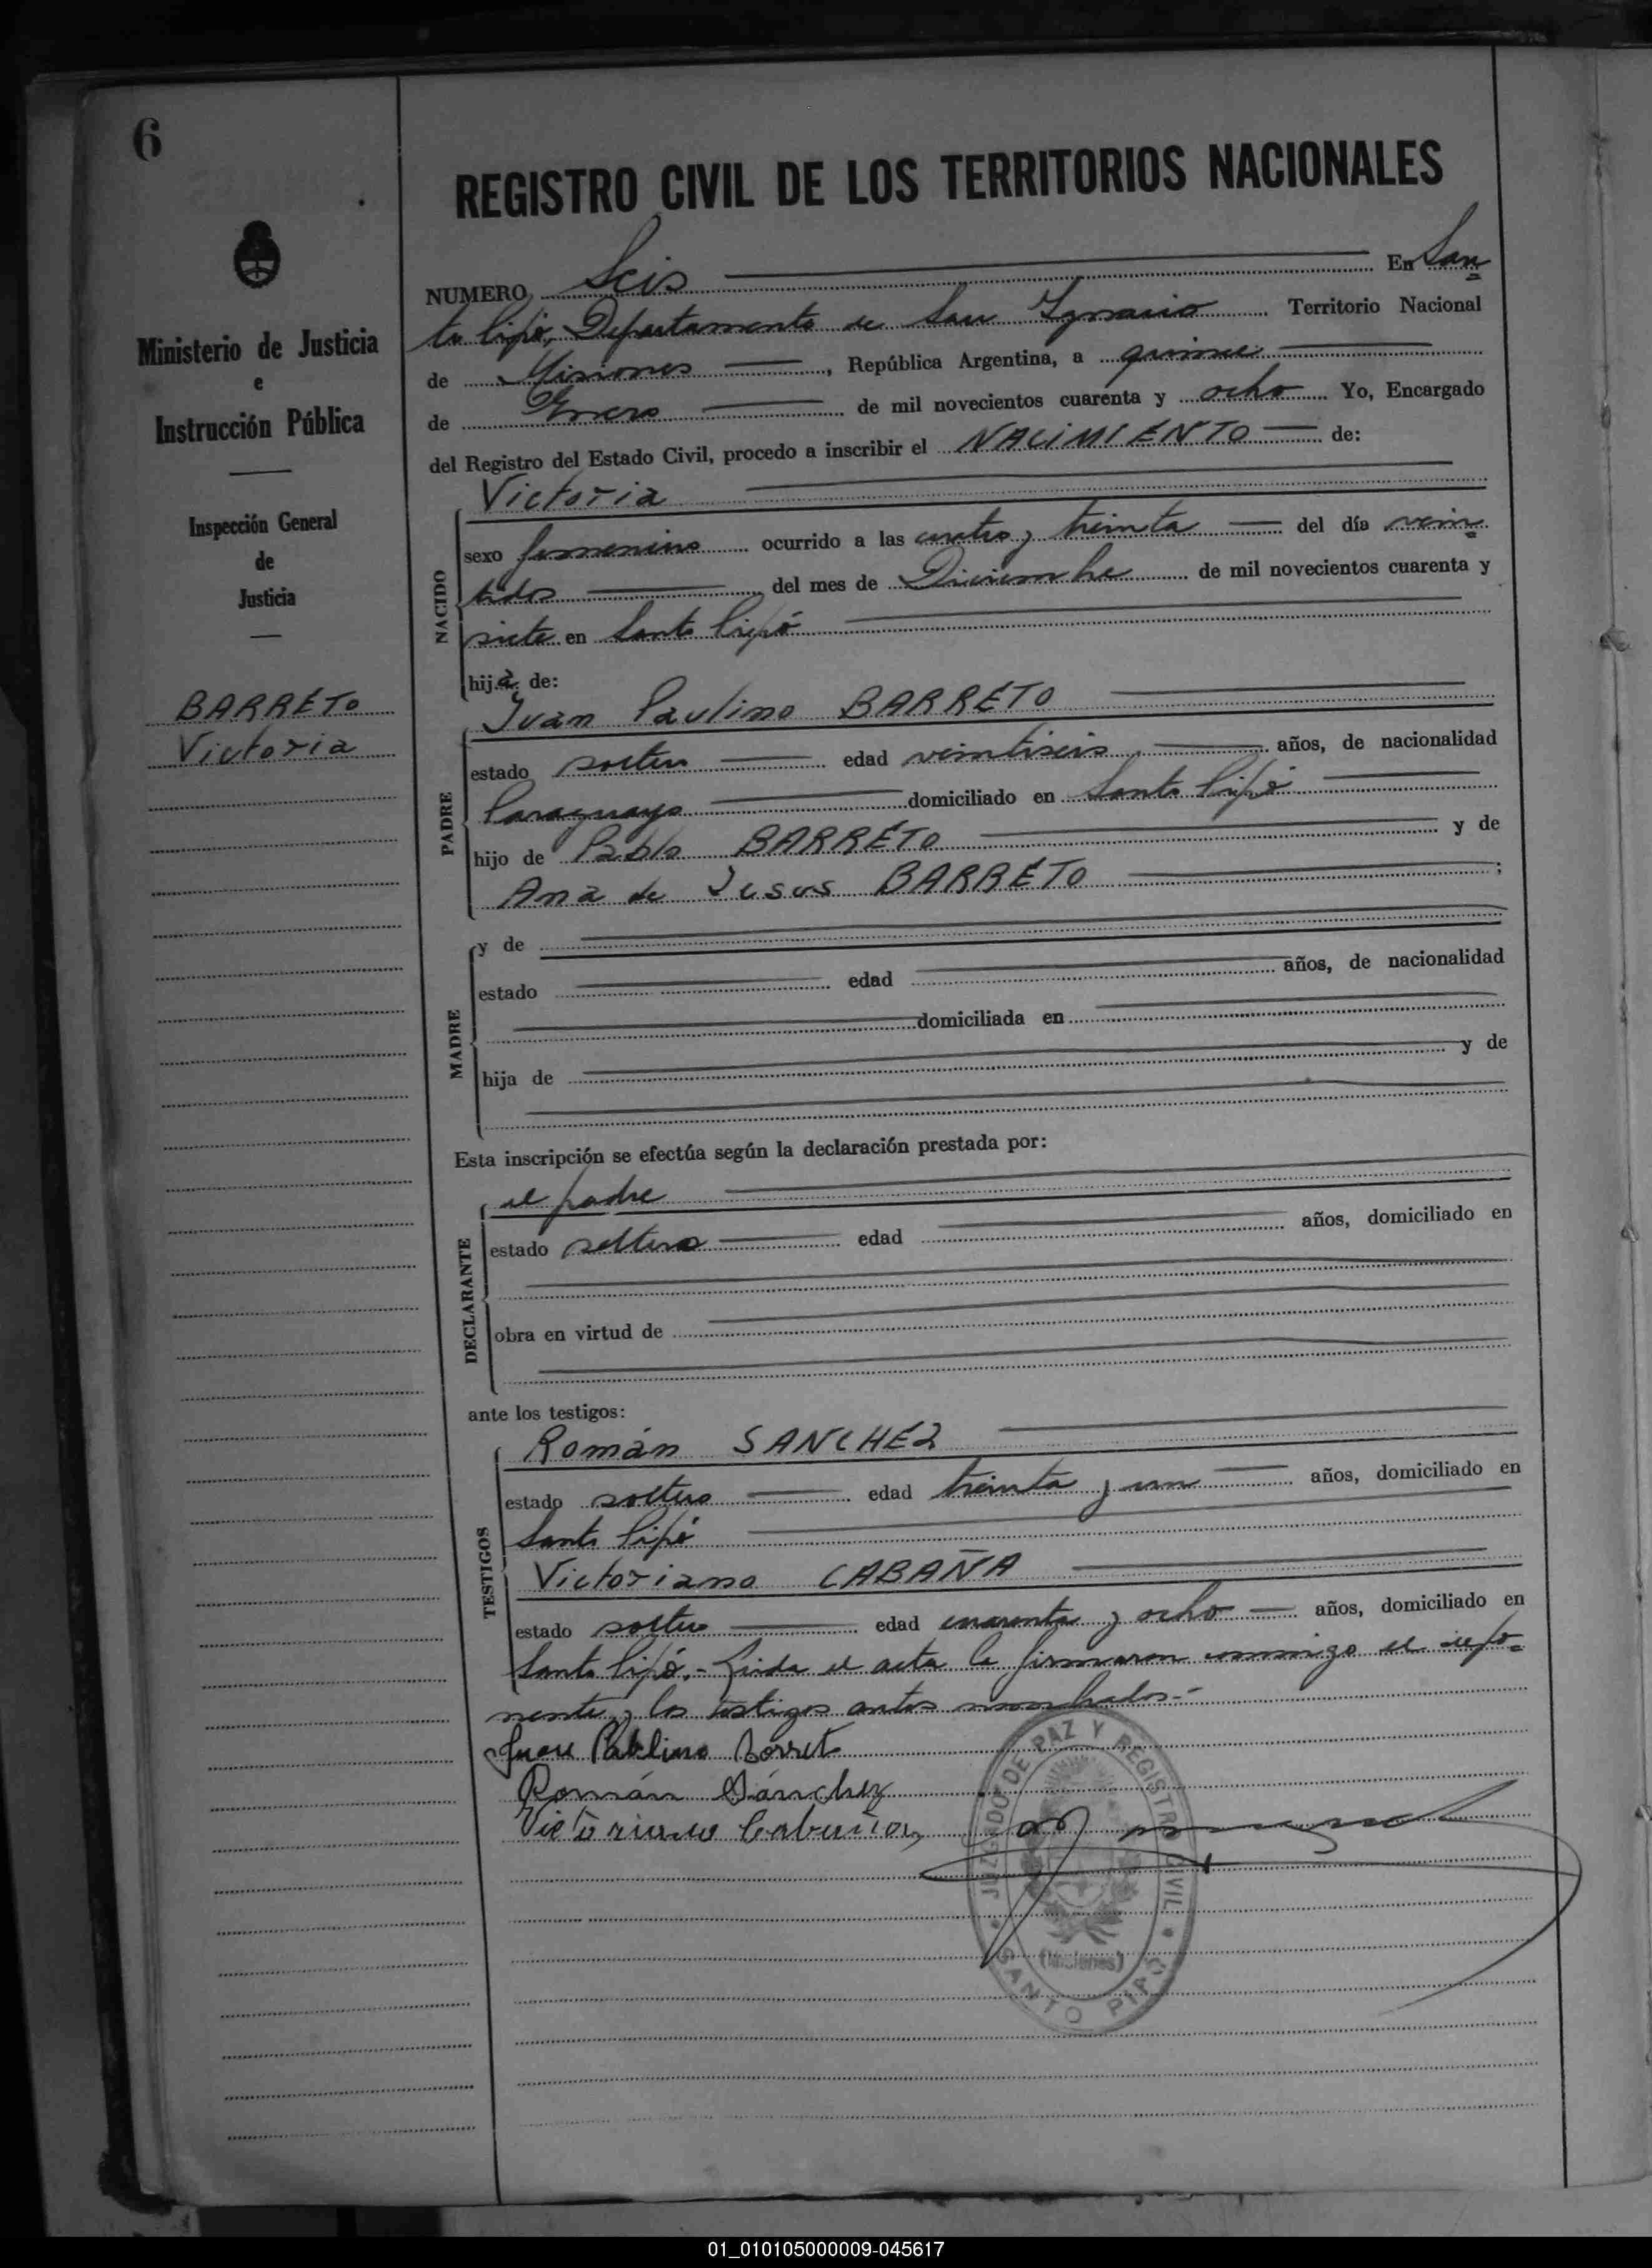 6
REGISTRO CIVIL DE LOS TERRITORIOS NACIONALES
Ministerio de Justicia
e
Instrucción Pública
Inspección General
de
Justicia
BARRÉTO
Victoria
NUMERO Seis En San
to Pipó, Departamento de San Ignacio Territorio Nacional
de Misiones, República Argentina, a quince
de Enero de mil novecientos cuarenta y ocho Yo, Encargado
del Registro del Estado Civil, procedo a inscribir el NACIMIENTO de:
NACIDO
Victoria
sexo femenino ocurrido a las cuatro y treinta del día vein
tidos del mes de Diciembre de mil novecientos cuarenta y
siete en Santo Pipó
hija de:
PADRE
Juan Paulino BARRÉTO
estado soltero edad veintiseis años, de nacionalidad
Paraguayo domiciliado en Santo Pipó
hijo de Pablo BARRÉTO y de
Ana de Jesus BARRÉTO ;
MADRE
y de
estado edad años, de nacionalidad
domiciliada en
hija de y de
Esta inscripción se efectúa según la declaración prestada por:
DECLARANTE
el padre
estado soltero edad años, domiciliado en
obra en virtud de
ante los testigos:
TESTIGOS
Román SANCHÉZ
estado soltero edad treinta y un años, domiciliado en
Santo Pipó
Victoriano CABAÑA
estado soltero edad cuarenta y ocho años, domiciliado en
Santo Pipó.- Leida el acta la firmaron conmigo el expo=
nente y los testigos antes nombrados.-
Juan Publino Borret
Román Sánchez
Victoriano Cabaña
JUZGADO DE PAZ Y REGISTRO CIVIL
(Misiones)
SANTO PIPÓ
01_010105000009-045617